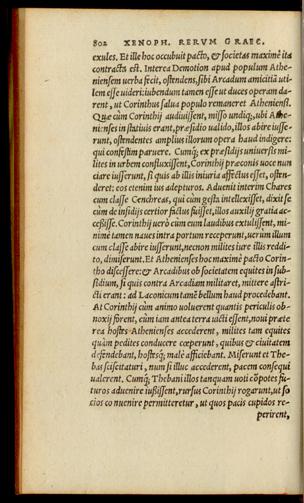 802 XENOPH. RERVM GRAEC.
exules. Et ille hoc occubuit pacto, & societas maximè ita
contracta est. Interea Demotion apud populum Athe-
niensem uerba fecit, ostendens, sibi Arcadum amicitiā uti-
lem esse uideri: iubendum tamen esse ut duces operam da-
rent, ut Corinthus salua populo remaneret Atheniensi.
Quæ cùm Corinthij audiuissent, misso undiq;, ubi Athe-
nienses in statiuis erant, præsidio ualido, illos abire iusse-
runt, ostendentes amplius illorum opera haud indigere:
qui confestim paruere. Cumq; ex præsidijs uniuersis mi-
lites in urbem confluxissent, Corinthij præconis uoce nun
ciare iusserunt, si quis ab illis iniuria affectus esset, osten-
deret: eos etenim ius adepturos. Aduenit interim Chares
cum classe Cenchreas, qui cùm gesta intellexisset, dixit se
cùm de insidijs certior factus fuisset, illos auxilij gratia ac-
cessisse. Corinthij uerò cùm eum laudibus extulissent, mi-
nimè tamen naues intra portum receperunt, uerùm illum
cum classe abire iusserunt, necnon milites iure illis reddi-
to, dimiserunt. Et Athenienses hoc maximè pacto Corin-
tho discessere: & Arcadibus ob societatem equites in sub-
sidium, si quis contra Arcadiam militaret, mittere astri-
cti erant: ad Laconicum tamē bellum haud procedebant.
At Corinthij cùm animo uoluerent quantis periculis ob-
noxij forent, cùm iam antea terra uicti essent, noui præte
rea hostes Athenienses accederent, milites tam equites
quàm pedites conducere cœperunt, quibus & ciuitatem
defendebant, hostesq; malè afficiebant. Miserunt et The-
bas sciscitaturi, num si illuc accederent, pacem consequi
ualerent. Cumq; Thebani illos tanquam uoti cōpotes fu-
turos aduenire iussissent, rursus Corinthij rogarunt, ut so
cios conuenire permitteretur, ut quos pacis cupidos re-
perirent,